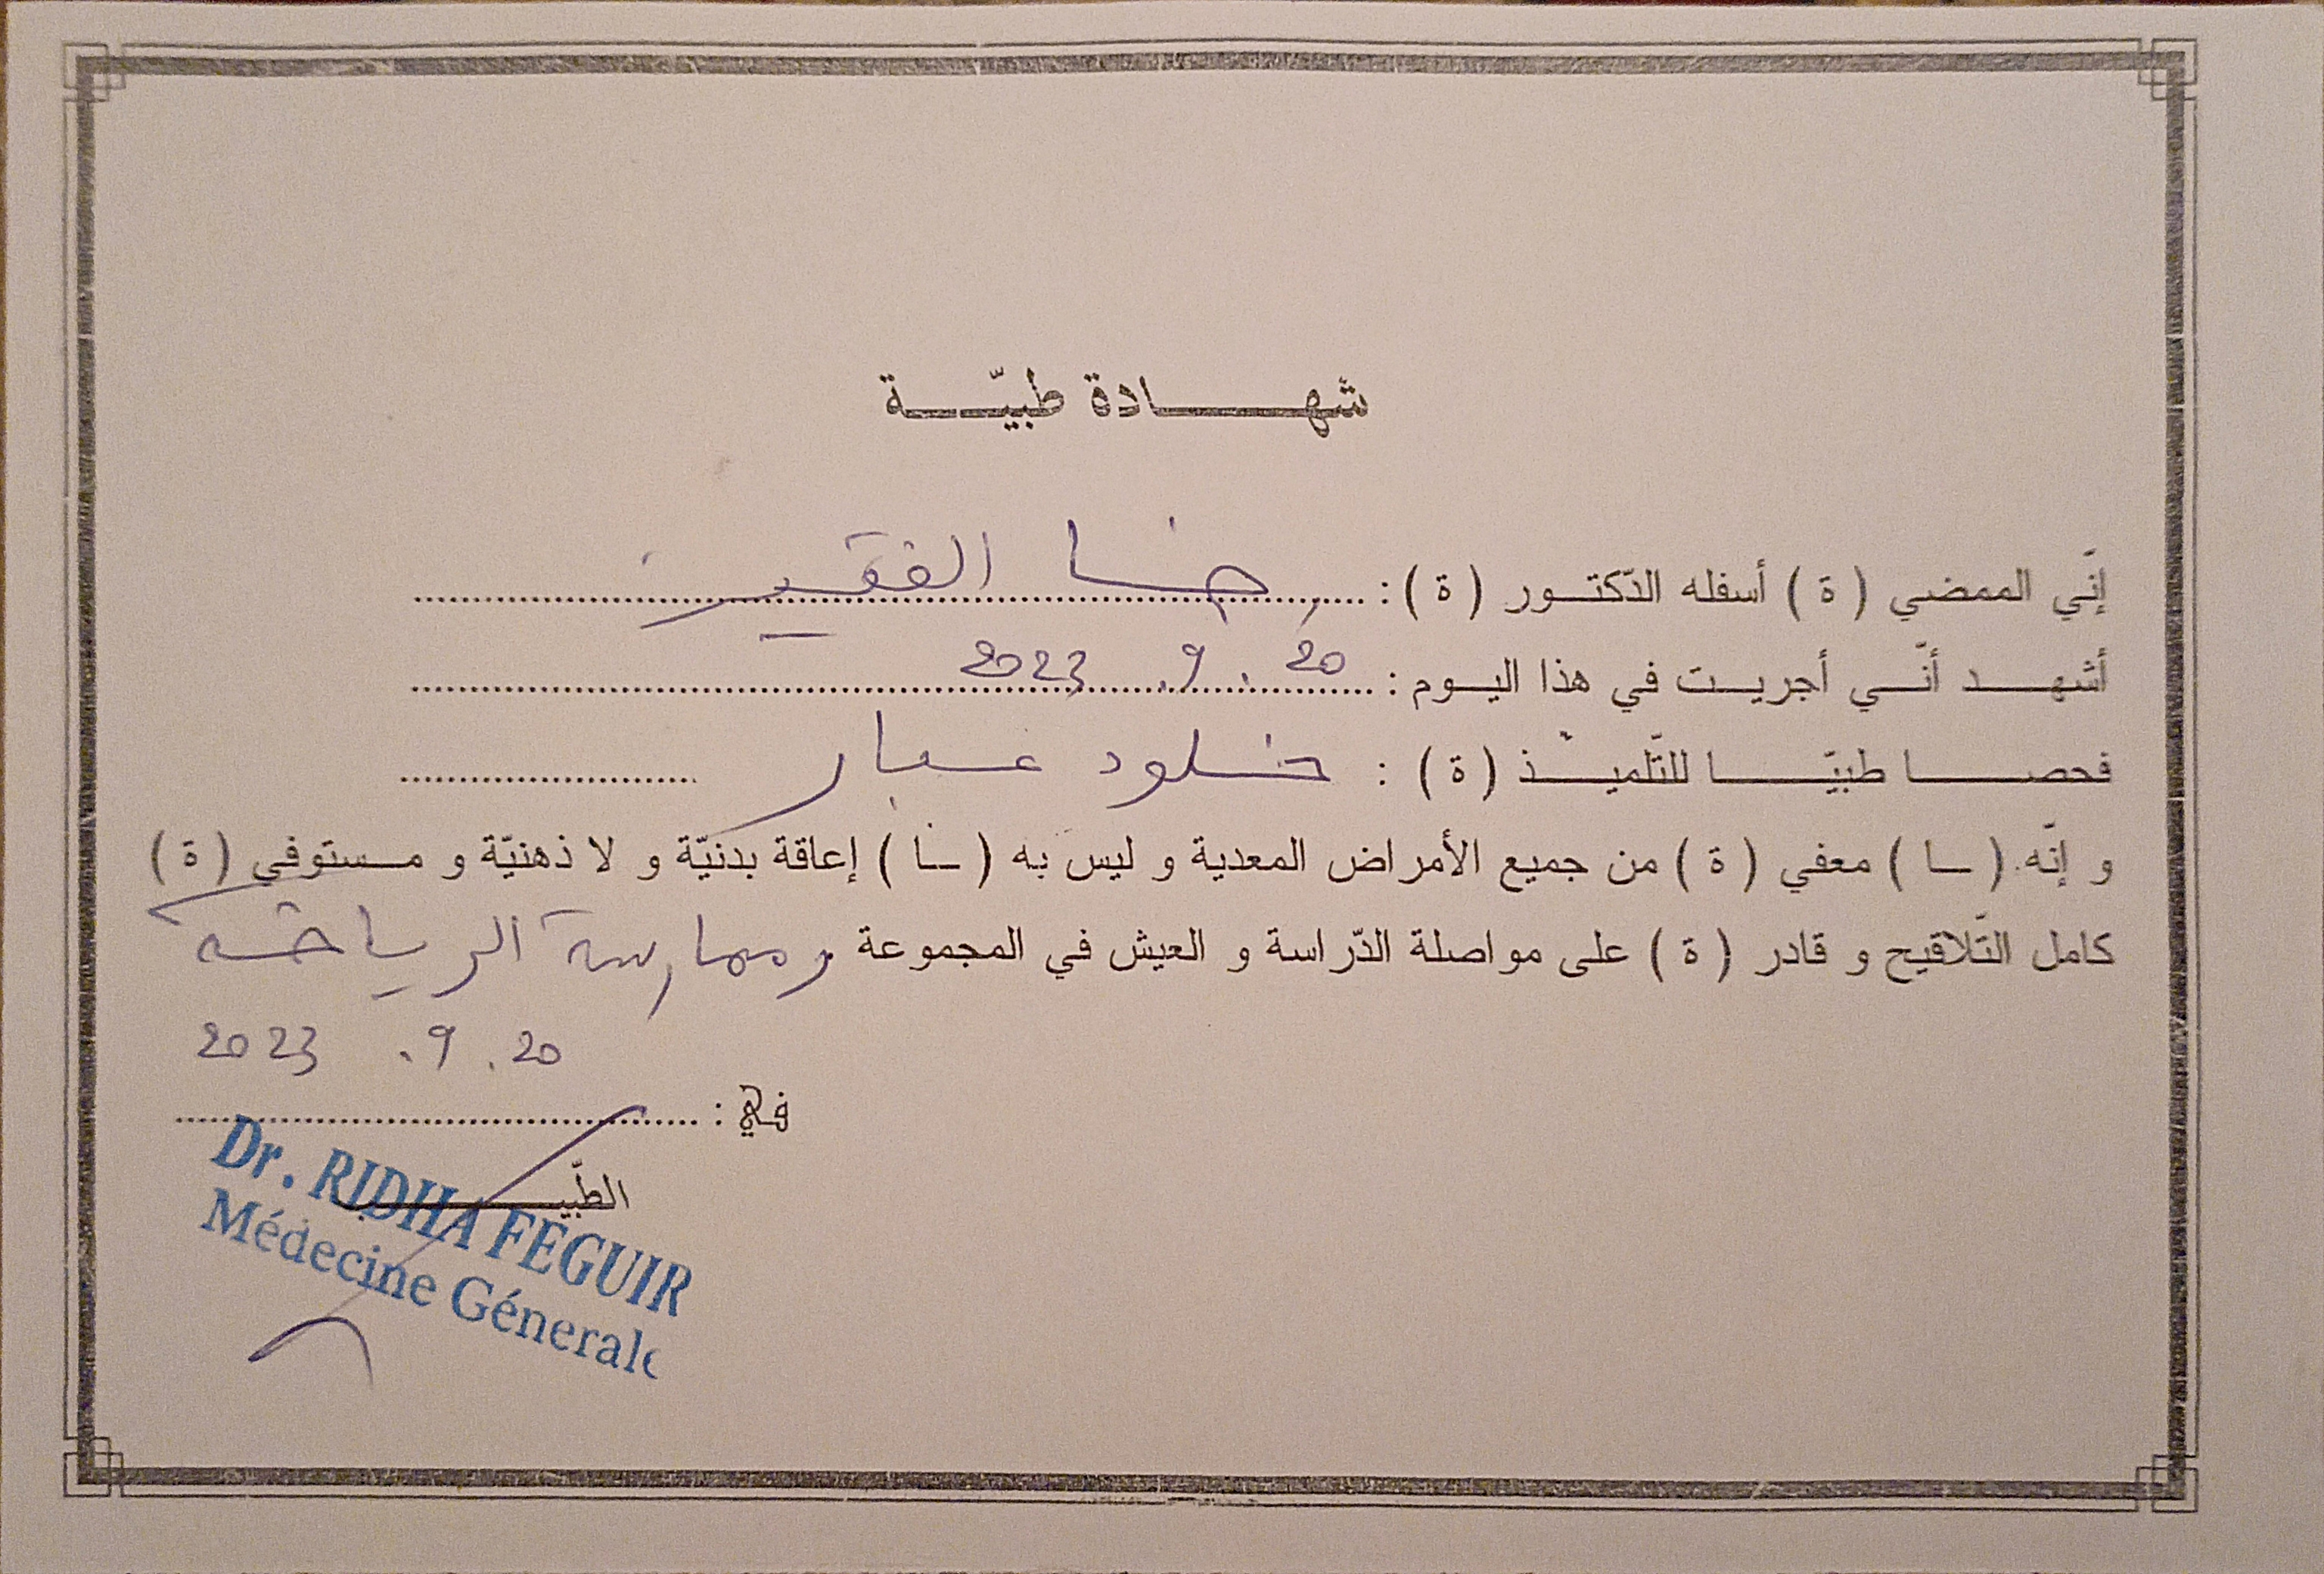 شهادة طبيّة
إنّي الممضي ( ة ) أسفله الدّكتور ( ة ) : رضا الفقير
أشهد أنّي أجريت في هذا اليوم : 20 . 9 . 2023
فحصا طبيّا للتّلميذ ( ة ) : خلود عبار
و إنّه ( ـا ) معفي ( ة ) من جميع الأمراض المعدية و ليس به ( ـا ) إعاقة بدنيّة و لا ذهنيّة و مستوفي ( ة )
كامل التّلاقيح و قادر ( ة ) على مواصلة الدّراسة و العيش في المجموعة و ممارسة الرياضة
20 . 9 . 2023
في :
الطّبيب
Dr. RIDHA FEGUIR
Médecine Génerale